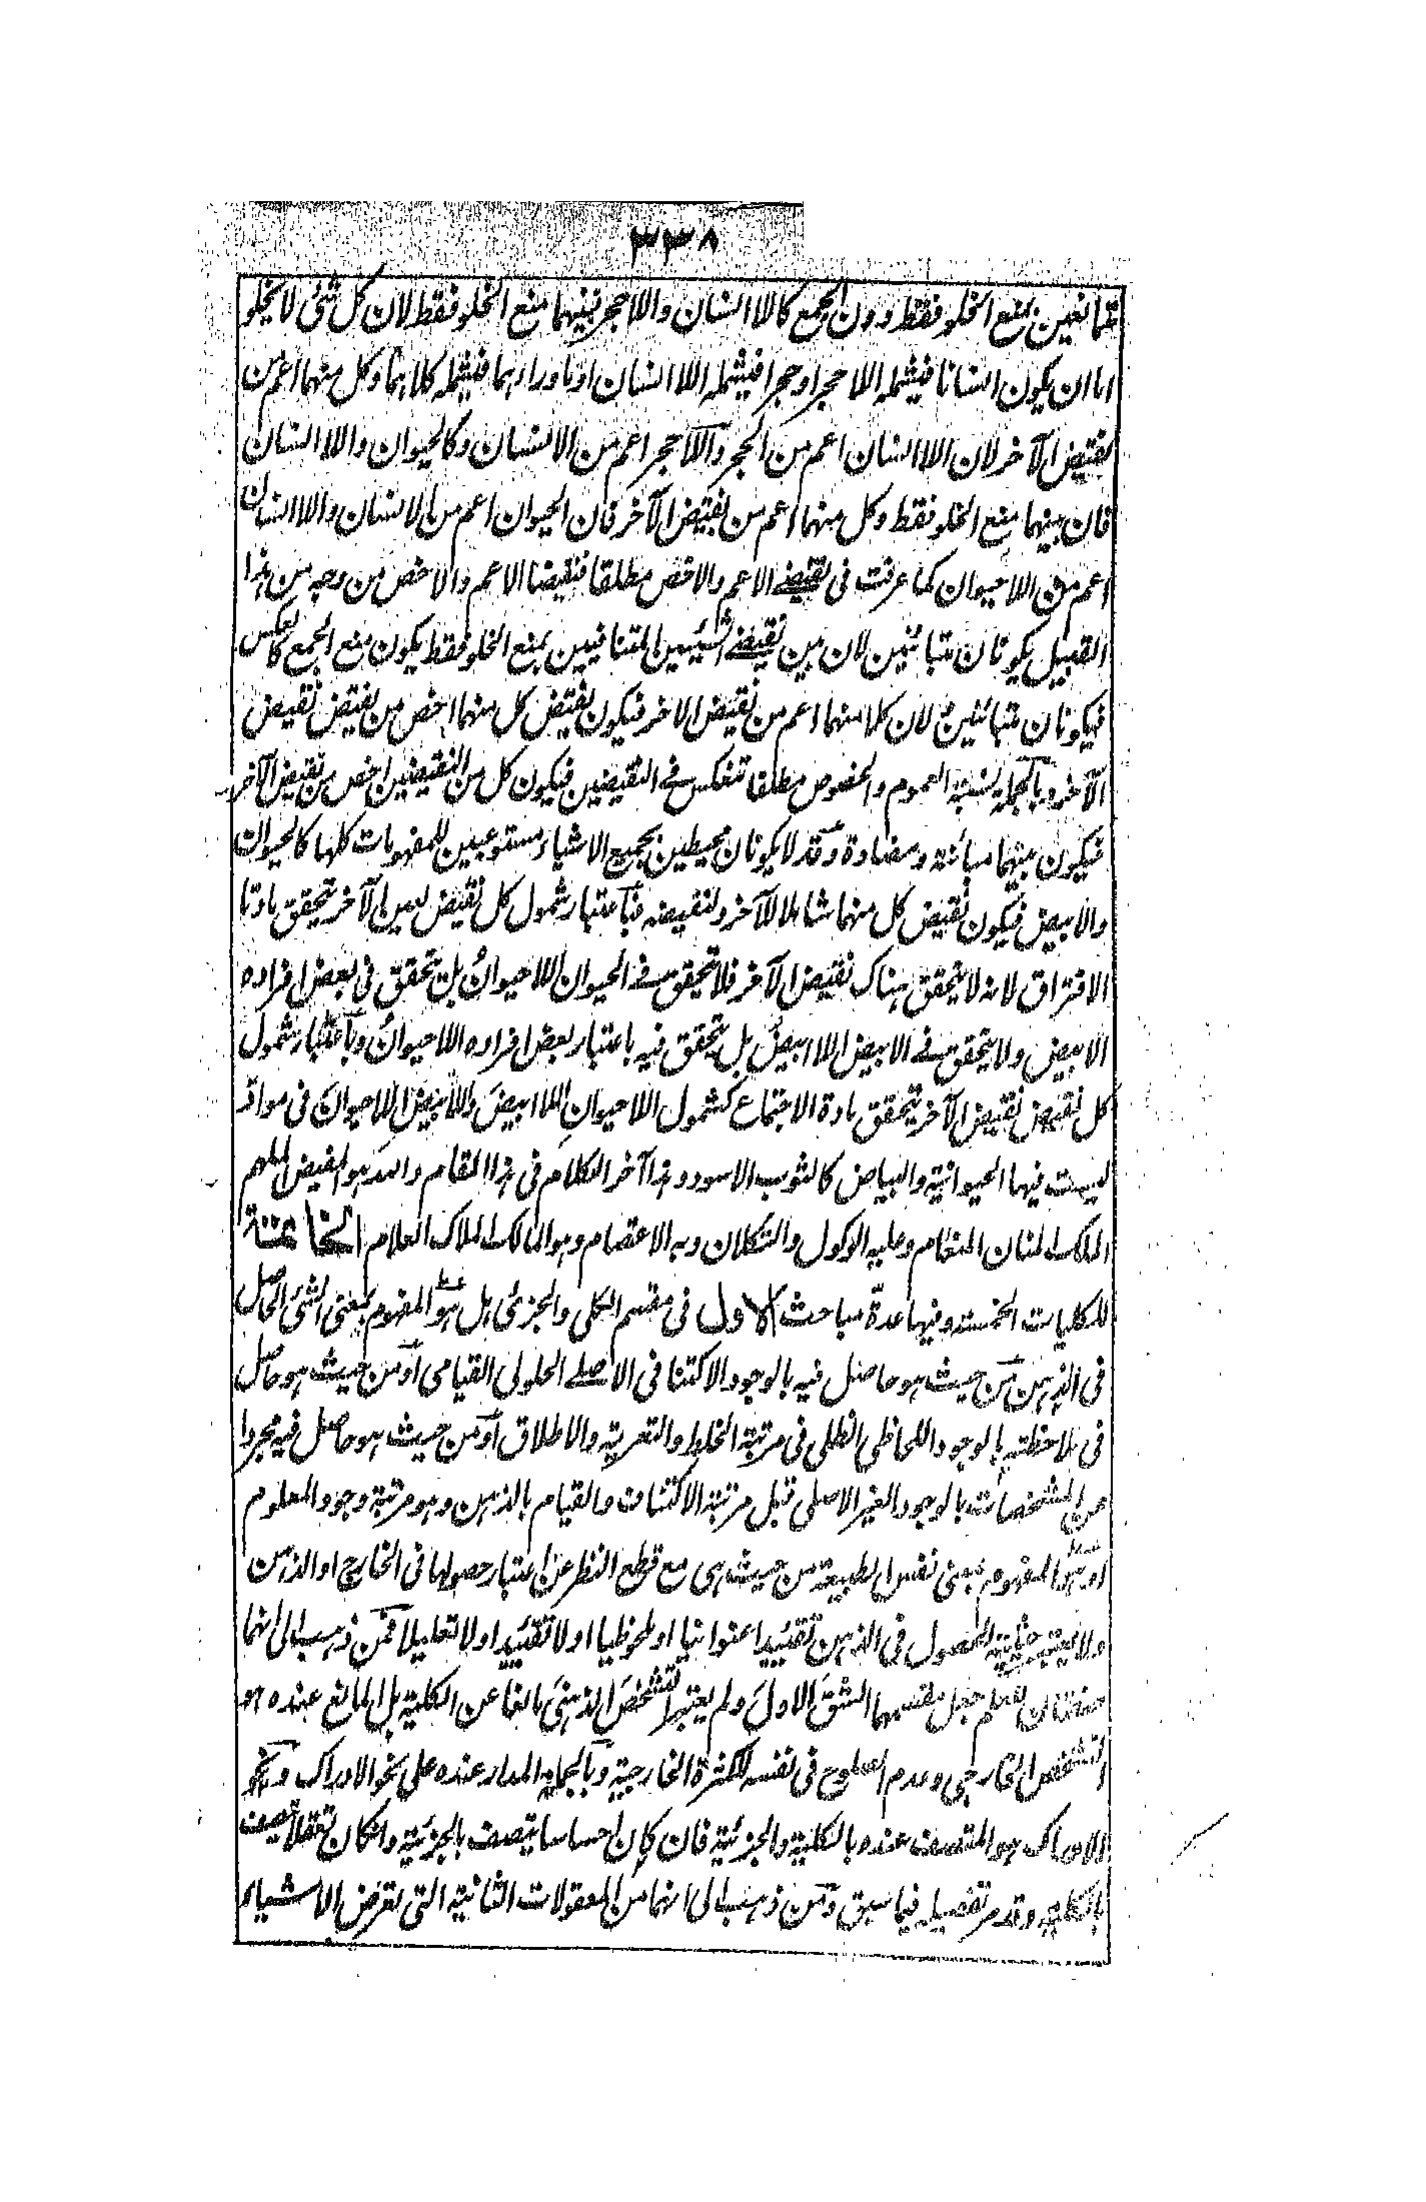 ٣٣٨
متمانعين بمنع الخلو فقط دون الجمع كاللاانسان واللاحجر فبينهما منع الخلو فقط لان كل شئ لا يخلو
اما ان يكون انسانا فيشمله اللاحجر او حجرا فيشمله اللاانسان او ما وراءهما فيشمله كلاهما وكل منهما اعم من
نقيض الآخر لان اللاانسان اعم من الحجر واللاحجر اعم من الانسان وكالحيوان واللاانسان
فان بينهما منع الخلو فقط وكل منهما اعم من نقيض الآخر فان الحيوان اعم من الانسان واللاانسان
اعم من اللاحيوان كما عرفت فى نقيضے الاعم والاخص مطلقا فنقيضا الاعم والاخص من وجه من هذا
القبيل يكونان متبائنين لان بين نقيضے الشيئين المتنافيين بمنع الخلو فقط يكون منع الجمع كالعكس
فيكونان متبائنين لان كلا منهما اعم من نقيض الاخر فيكون نقيض كل منهما اخص من نقيض نقيض
الآخر وبالجملة نسبة العموم والخصوص مطلقا تنعكس فے النقيضين فيكون كل من النقيضين اخص من نقيض الآخر
فيكون بينهما مبائنة ومضادة وقد لا يكونان محيطين بجميع الاشياء مستوعبين للمفهومات كلها كالحيوان
والابيض فيكون نقيض كل منهما شاملا للآخر ولنقيضه فباعتبار شمول كل نقيض لعين الآخر تتحقق مادتا
الافتراق لانه لا يتحقق هناك نقيض الآخر فلا تحقق فے الحيوان اللاحيوان بل يتحقق فى بعض افراده
الابيض ولا يتحقق فے الابيض اللاابيض بل يتحقق فيه باعتبار بعض افراده اللاحيوان وباعتبار شمول
كل نقيض نقيض الآخر يتحقق مادة الاجتماع كشمول اللاحيوان اللاابيض واللاابيض اللاحيوان فى مواد
ليست فيها الحيوانية والبياض كالثوب الاسود وهذا آخر الكلام فى هذا المقام والله هو المفيض الملهم
الملك المنان المنعام وعليه الوكول والتكلان وبه الاعتصام وهو المالك الملاك العلام الخاتمة
للكليات الخمسة وفيها عدة مباحث الاول فى مقسم الكلى والجزئى هل هو المفهوم بمعنى الشئ الحاصل
فى الذهن من حيث هو حاصل فيه بالوجود الاكتنافى الاصلے الحلولى القيامى او من حيث هو حاصل
فى ملاحظته بالوجود اللحاظى الظلى فى مرتبة الخلط والتعرية والاطلاق او من حيث هو حاصل فيه مجردا
عن المشخصات بالوجود الغير الاصلى قبل مرتبة الاكتناف والقيام بالذهن وهو مرتبة وجود المعلوم
او هو المفهوم بمعنى نفس الطبيعة من حيث هى مع قطع النظر عن اعتبار حصولها فى الخارج او الذهن
ولا يعتبر حيثية الحصول فى الذهن تقييدا عنوانيا او ملحوظيا اولا تقييدا ولا تعليلا فمن ذهب الى انهما
صفتان للعلم جعل مقسمهما الشق الاول ولم يعتبر التشخص الذهنى مانعا عن الكلية بل المانع عنده هو
التشخص الخارجى وعدم الصلوح فى نفسه للكثرة الخارجية وبالجملة المدار عنده على نحو الادراك ونحو
الادراك هو المتصف عنده بالكلية والجزئية فان كان احساسا يتصف بالجزئية وان كان تعقلا يتصف
بالكلية وقد مر تفصيله فيما سبق ومن ذهب الى انهما من المعقولات الثانية التى تعرض الاشياء